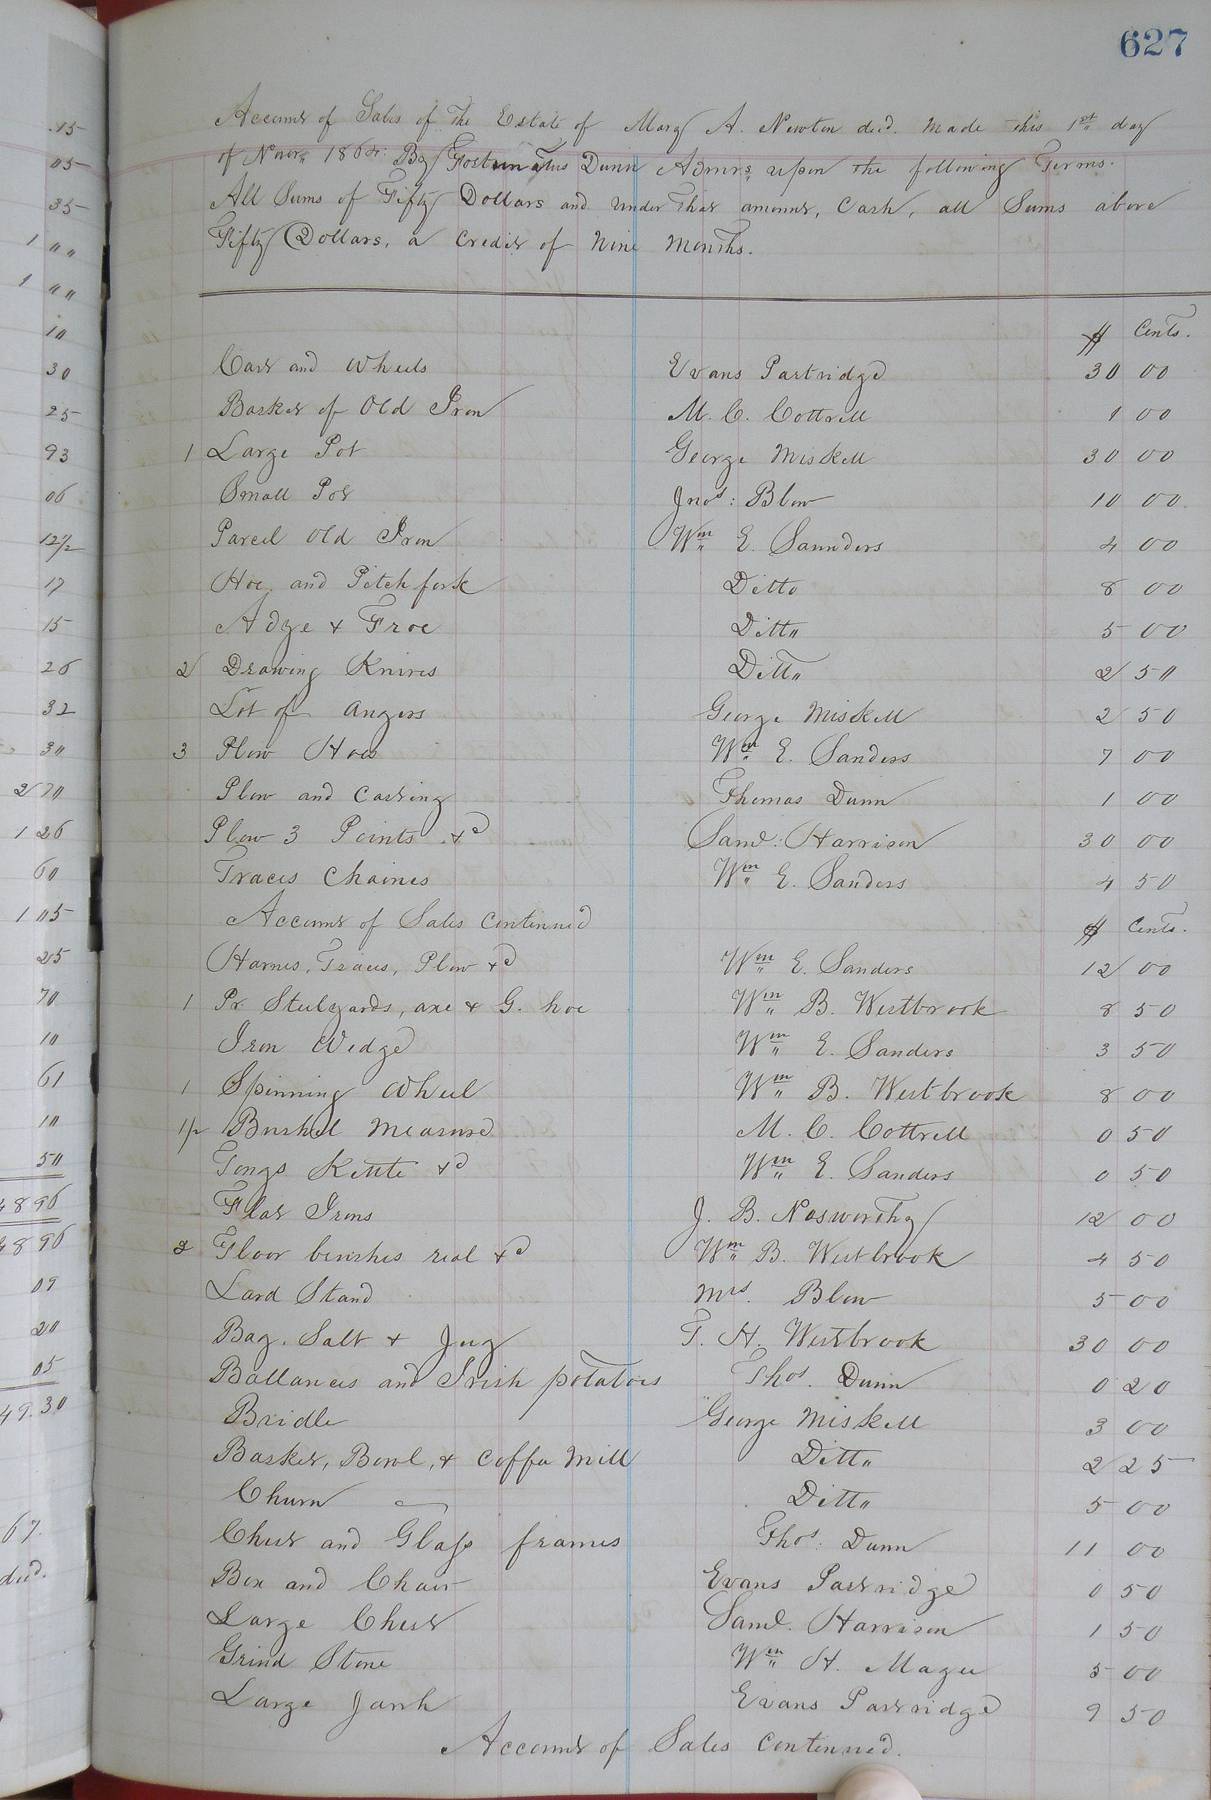 627
Account of Sales of the Estate of Mary A. Newton decd. made this 1st day
of Novr 1864. By Fortunatus Dunn Admrs upon the following Terms.
All Sums of Fifty Dollars and under that amount, Cash, all Sums above
Fifty Dollars, a credit of Nine Months.
$ Cents.
Cart and Wheels Evans Partridge 30 00
Basket of Old Iron M. C. Cottrell 1 00
1 Large Pot George Miskell 30 00
Small Pot Jnos: Blow 10 00
Parcel Old Iron Wm E. Saunders 4 00
Hoe, and Pitchfork Ditto 8 00
Adze & Froe Ditto 5 00
2 Drawing Knives Ditto 2 50
Lot of Augers George Miskell 2 50
3 Plow Hoes Wm E. Sanders 7 00
Plow and Casting Thomas Dunn 1 00
Plow 3 Points &c Saml: Harrison 30 00
Traces Chaines Wm E. Sanders 4 50
Account of Sales Continued $ Cents.
Harnes, Traces, Plow &c Wm E. Sanders 12 00
1 Pr Steelyards, axe & G. hoe Wm B. Westbrook 8 50
Iron Wedge Wm E. Sanders 3 50
1 Spinning Wheel Wm B. Westbrook 8 00
1/2 Bushel Measure M. C. Cottrell 0 50
Tongs Kettle &c Wm E. Sanders 0 50
Flat Irons J. B. Nosworthy 12 00
2 Floor brushes real &c Wm B. Westbrook 4 50
Lard Stand Mrs. Blow 5 00
Bag. Salt & Jug T. H. Westbrook 30 00
Ballances and Irish potatoes Thos. Dunn 0 20
Bridle George Miskell 3 00
Basket, Bowl, & Coffee Mill Ditto 2 25
Churn Ditto 5 00
Chest and Glass frames Thos: Dunn 11 00
Box and Chair Evans Partridge 0 50
Large Chest Saml. Harrison 1 50
Grind Stone Wm H. Magee 5 00
Large Jarrh Evans Partridge 9 50
Account of Sales Continued.